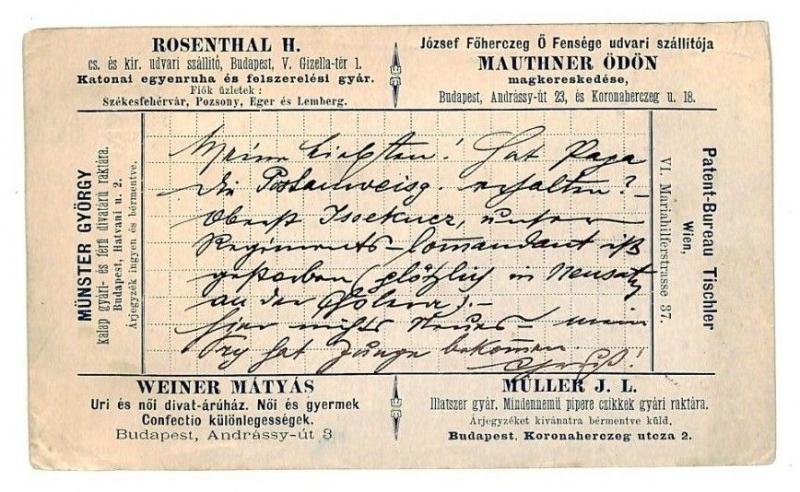 ROSENTHAL H.
cs. és kir. udvari szállító, Budapest, V. Gizella-tér 1.
Katonai egyenruha és felszerelési gyár.
Fiók üzletek:
Székesfehérvár, Pozsony, Eger és Lemberg.
József Főherczeg Ő Fensége udvari szállítója
MAUTHNER ÖDÖN
magkereskedése,
Budapest, Andrássy-út 23, és Koronaherczeg u. 18.
MÜNSTER GYÖRGY
kalap gyári- és férfi divatárú raktára.
Budapest, Hatvani u. 2.
Árjegyzék ingyen és bérmentve.
Meine Liebsten! Hat Papa
die Postanweisg. erhalten? –
Oberst, unser
Regiments-Comandant ist
gestorben (plötzlich in Neusatz
an der Cholera). –
Hier nichts Neues – mein
hat Junge bekommen.
Patent-Bureau Tischler
Wien,
VI. Mariahilferstrasse 37.
WEINER MÁTYÁS
Uri és női divat-árúház. Női és gyermek
Confectio különlegességek.
Budapest, Andrássy-út 3
MÜLLER J. L.
Illatszer gyár. Mindennemű pipere czikkek gyári raktára.
Árjegyzéket kivánatra bérmentve küld.
Budapest, Koronaherczeg utcza 2.